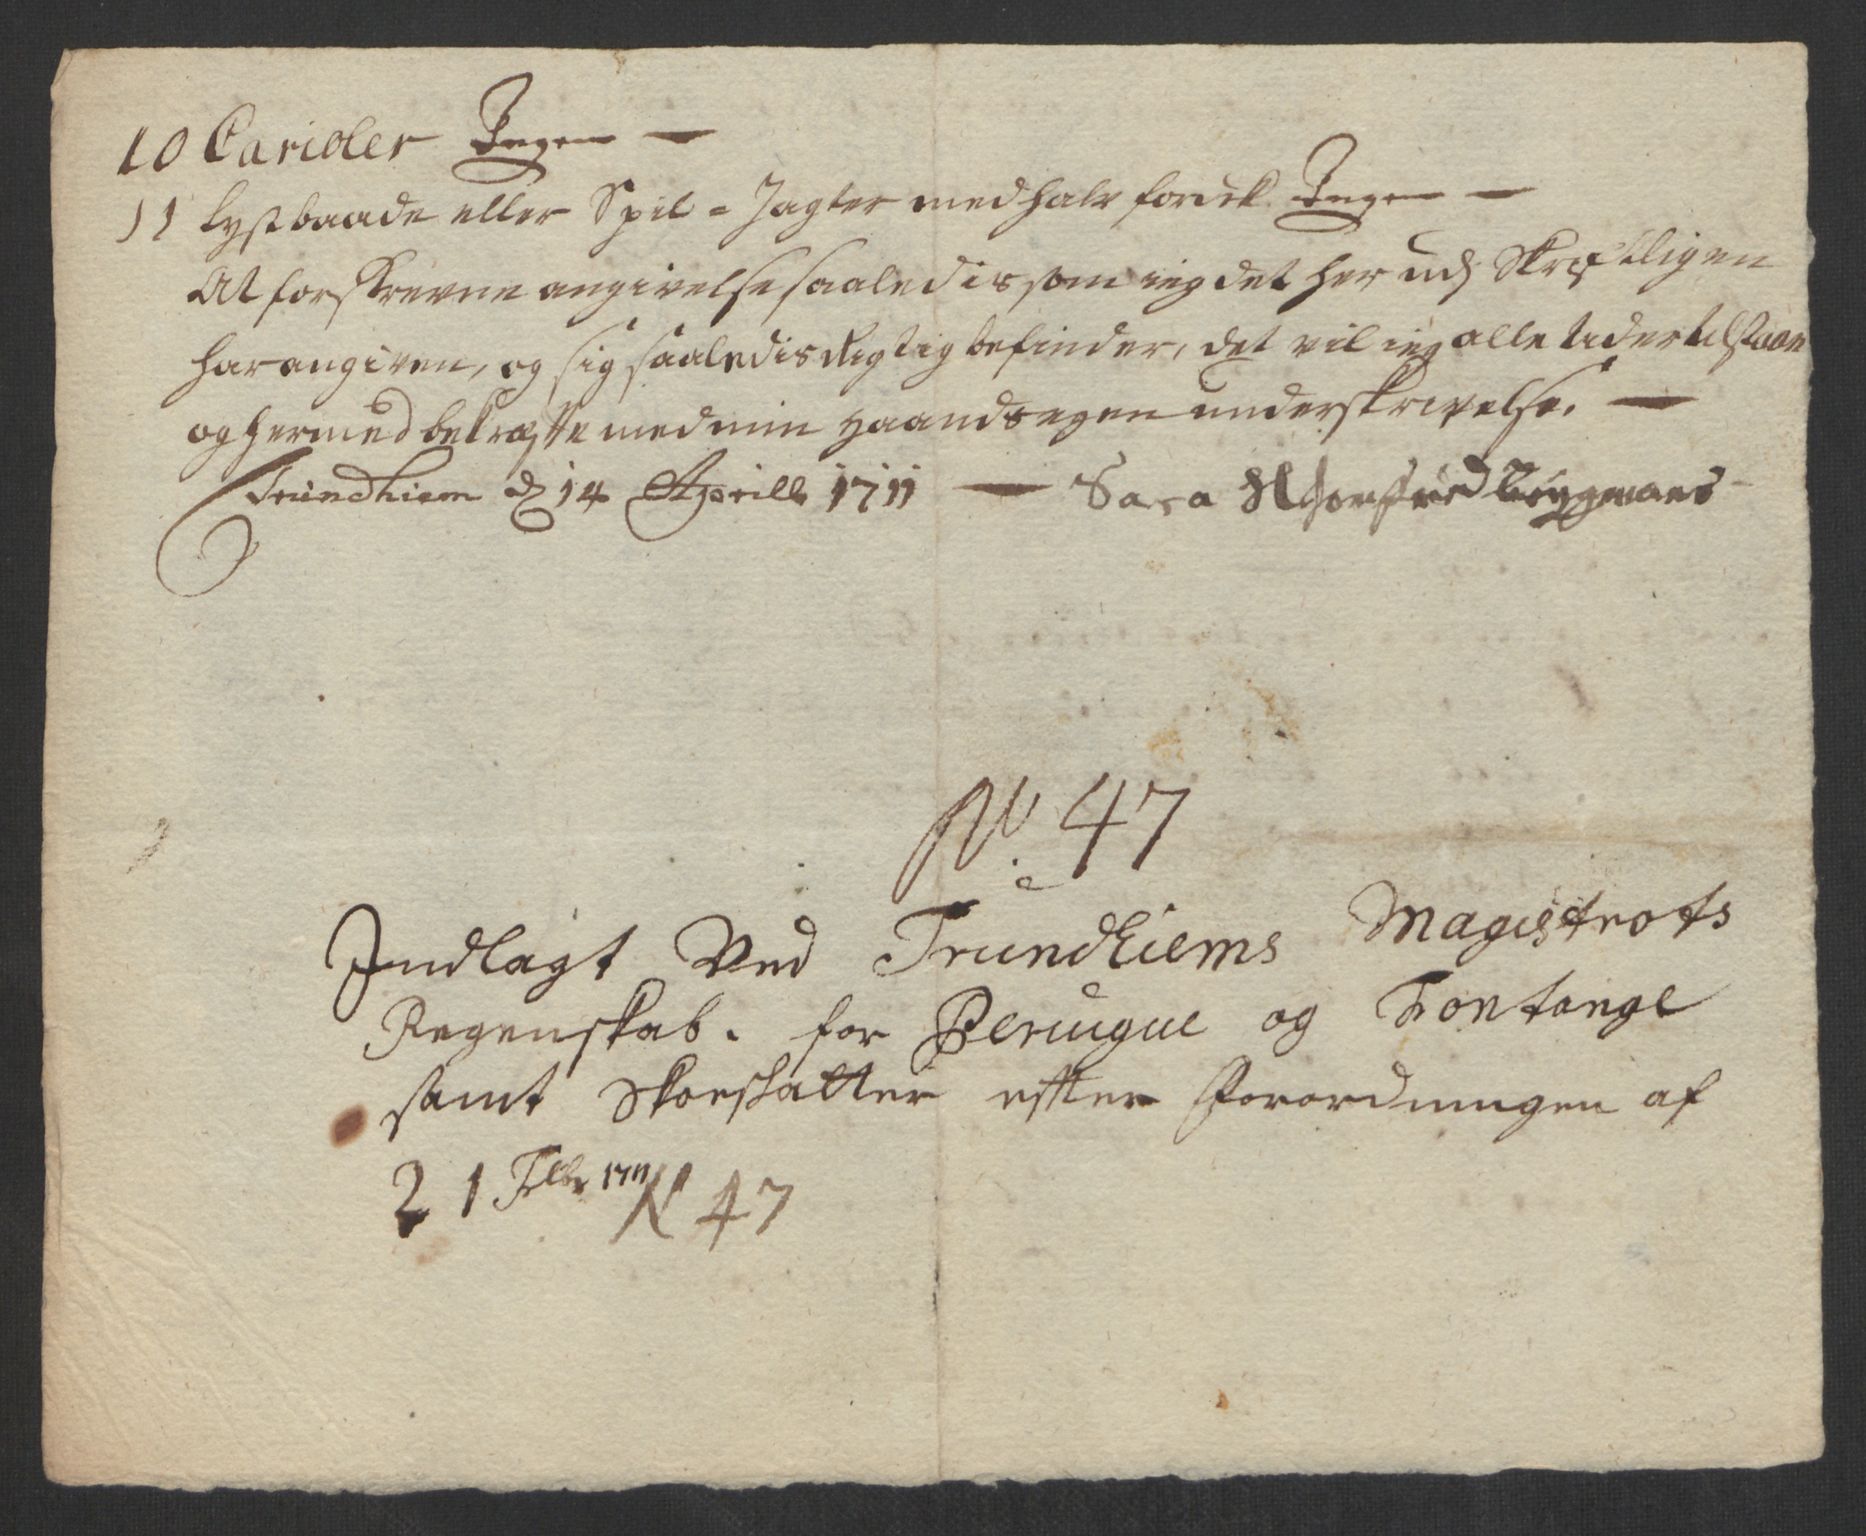 10 Carioler Ingen —
11 Lystbaade eller Spil = Jagter med halv fordek Ingen —
At forskrevne angivelse saaledis som ieg det her udj Skriftligen
har angiven, og sig saaledis Rigtig befinder, det vil ieg alle tider tilstaae
og hermed bekræfte med min haands egen underskrivelse. —
Trundhiem d 14 Aprill 1711 — Sara
No. 47
Indlagt Ved Trundhiems Magistrats
Regenskab. for Peruque og Fontange
samt Skoeskatter efter Forordningen af
21 Febr 1711 N 47